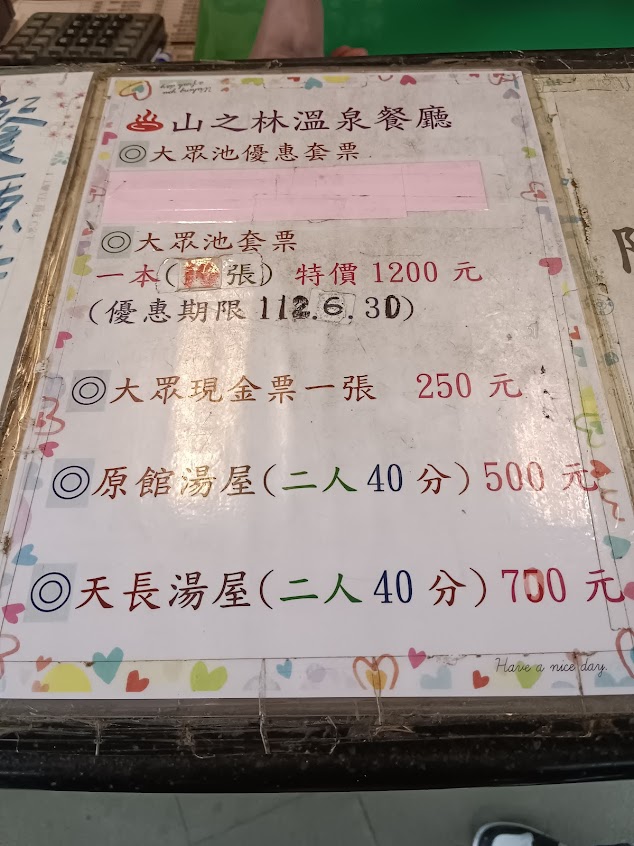 山之林溫泉餐廳
◎大眾池優惠套票
◎大眾池套票
一本(張) 特價 1200 元
(優惠期限 112.6.30)
◎大眾現金票一張 250 元
◎原館湯屋(二人 40 分) 500 元
◎天長湯屋(二人 40 分) 700 元
Have a nice day.